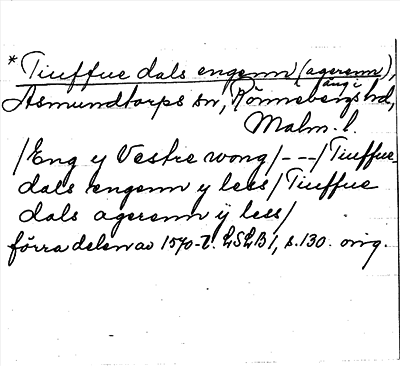 * Tiuffue dals engenn (agerenn),
äng i
Asmundtorps sn, Rönnebergs hd,
Malm. l.
/Eng y Vestre wong/---/Tiuffue-
dals engenn y less/Tiuffue
dals agerenn ÿ less/
förra delen av 1570-t. LSLB1, s. 130. orig.